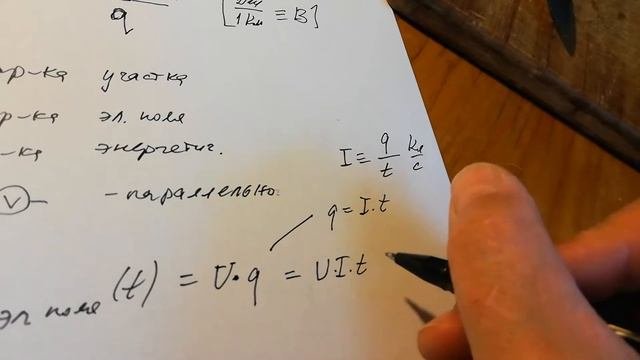 q [1 Дж / 1 Кл ≡ В]
р-ка участка
р-ка эл. поля
-ка энергетич.
I ≡ q/t Кл/с
V - параллельно.
q = I·t
эл поле (t) = U·q = U·I·t